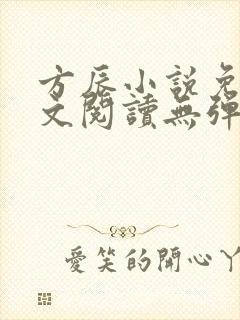 方辰小說免
文閱讀無彈
愛笑的開心丫